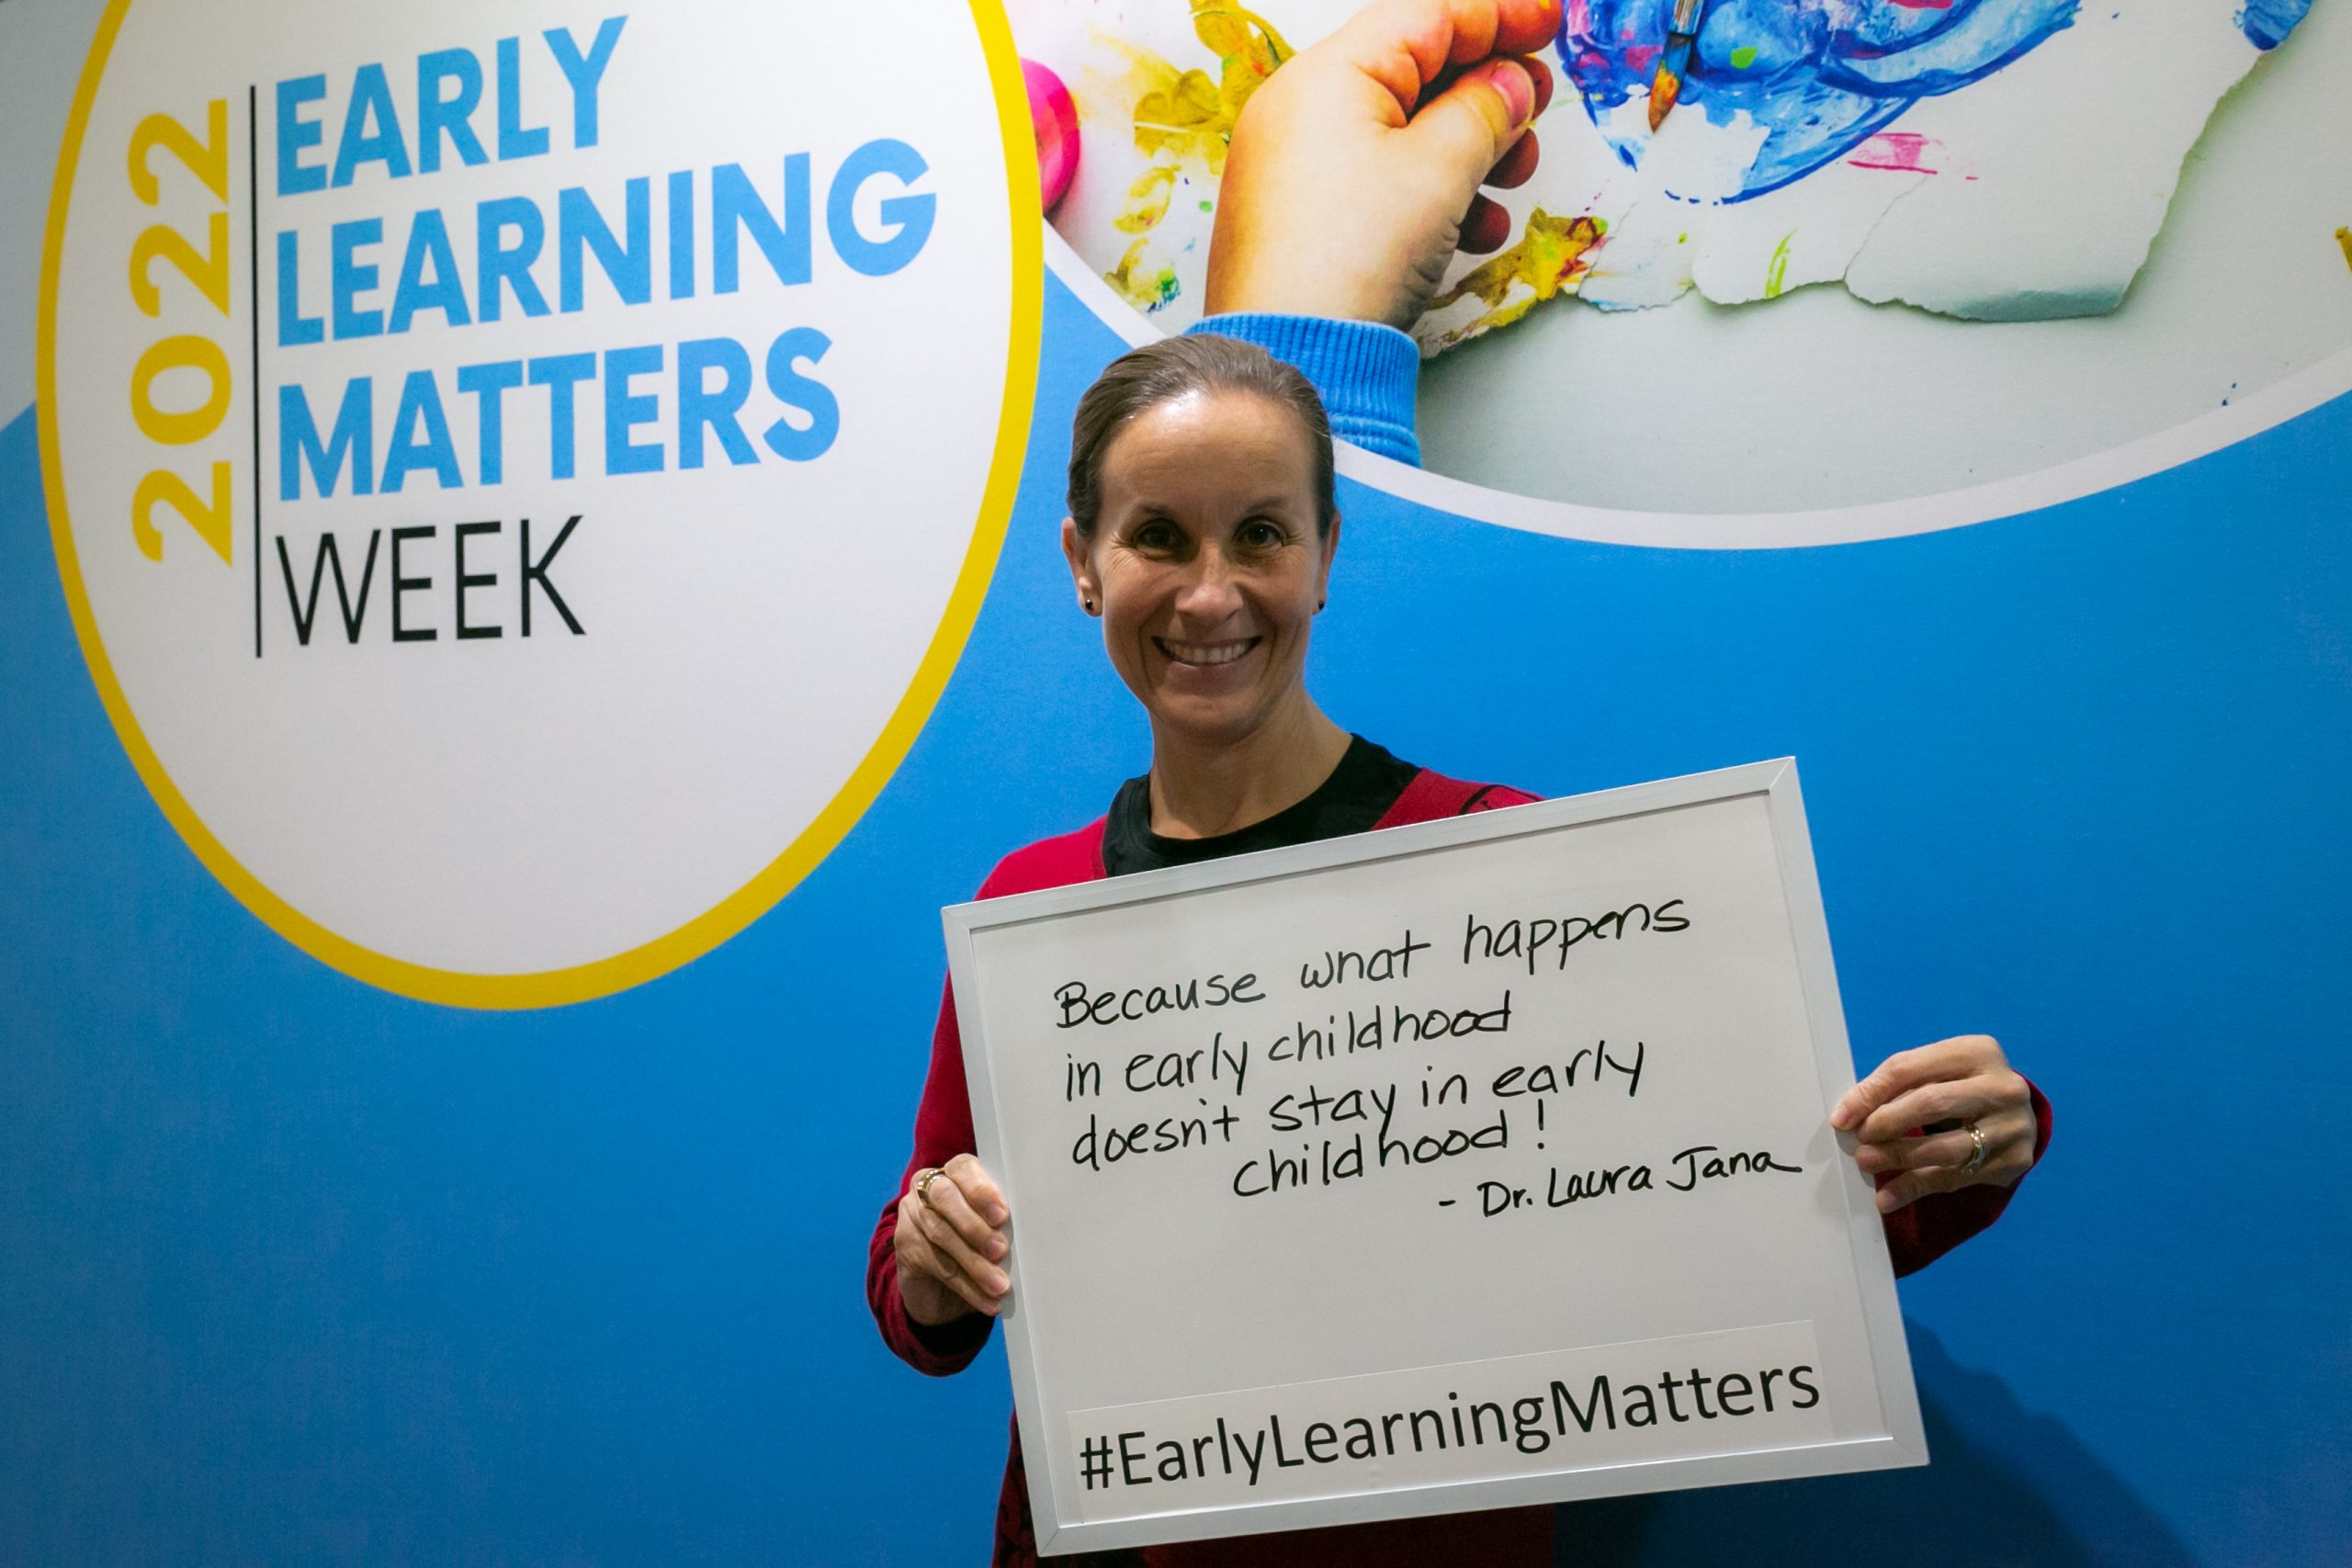 2022
EARLY
LEARNING
MATTERS
WEEK
Because what happens
in early childhood
doesn't stay in early
childhood!
- Dr. Laura Jana
#EarlyLearningMatters